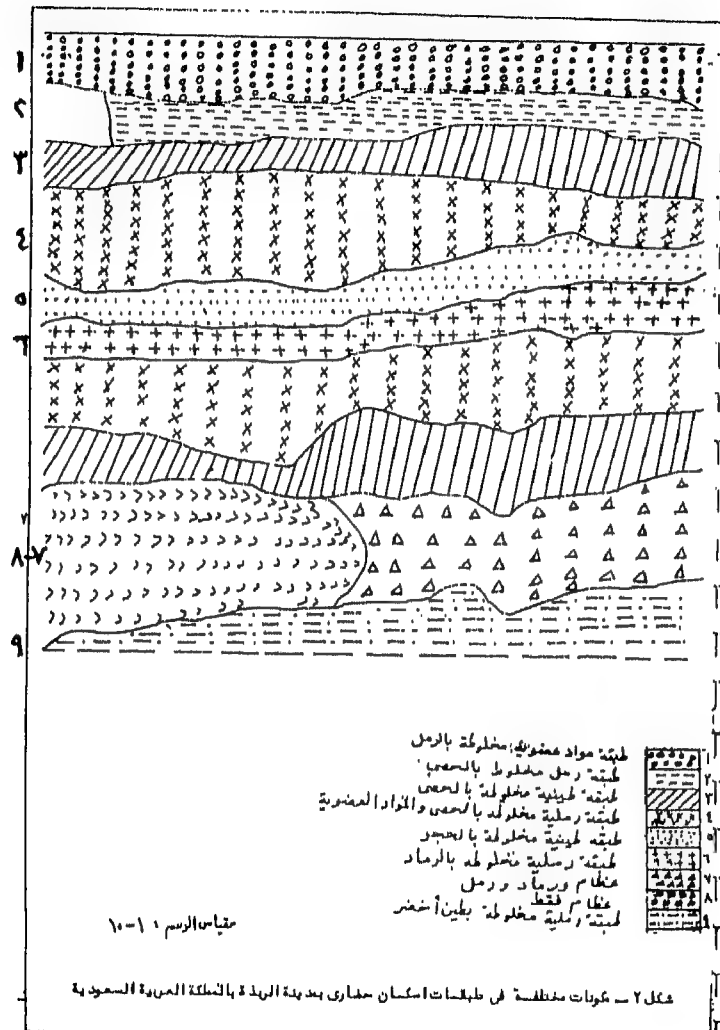 ١
٢
٣
٤
٥
٦
٨-٧
٩
طبقة مواد عضوية مخلوطة بالرمل ١
طبقة رمل مخلوط بالحصى ٢
طبقة طينية مخلوطة بالحصى ٣
طبقة رملية مخلوطة بالحصى والمواد العضوية ٤
طبقة طينية مخلوطة بالحجر ٥
طبقة رملية مخلوطة بالرماد ٦
عظام ورماد ورمل ٧
عظام فقط ٨
طبقة رملية مخلوطة بطين أخضر ٩
مقياس الرسم : ١-١٠
شكل ٢ ـ مكونات مختلفة في طبقات اسكان حضارى بمدينة الربذة بالمملكة العربية السعودية